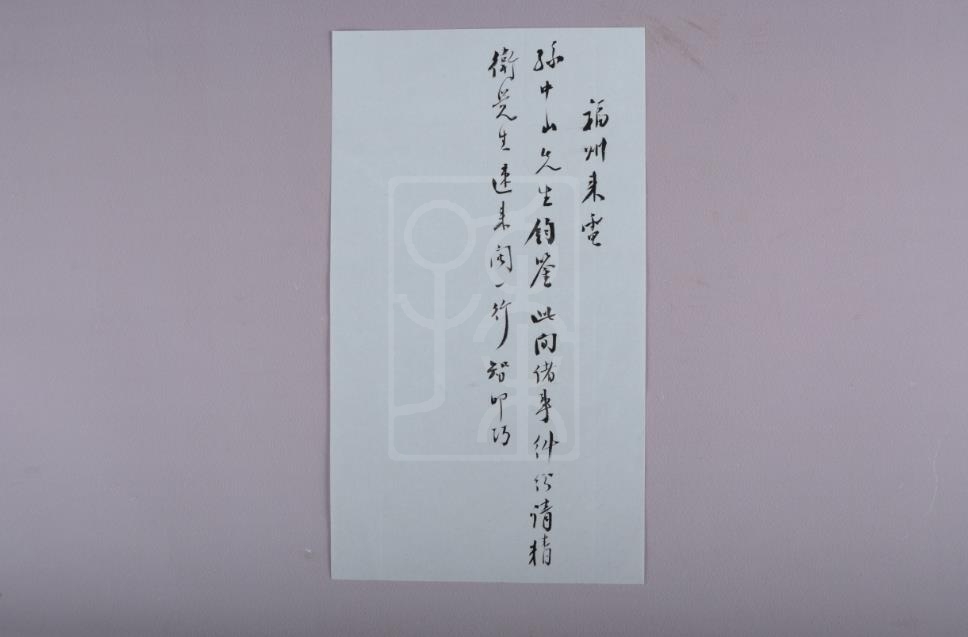 福州来電
孫中山先生鈞鉴此间诸事纷纷请精
衛先生速来闽一行智叩巧